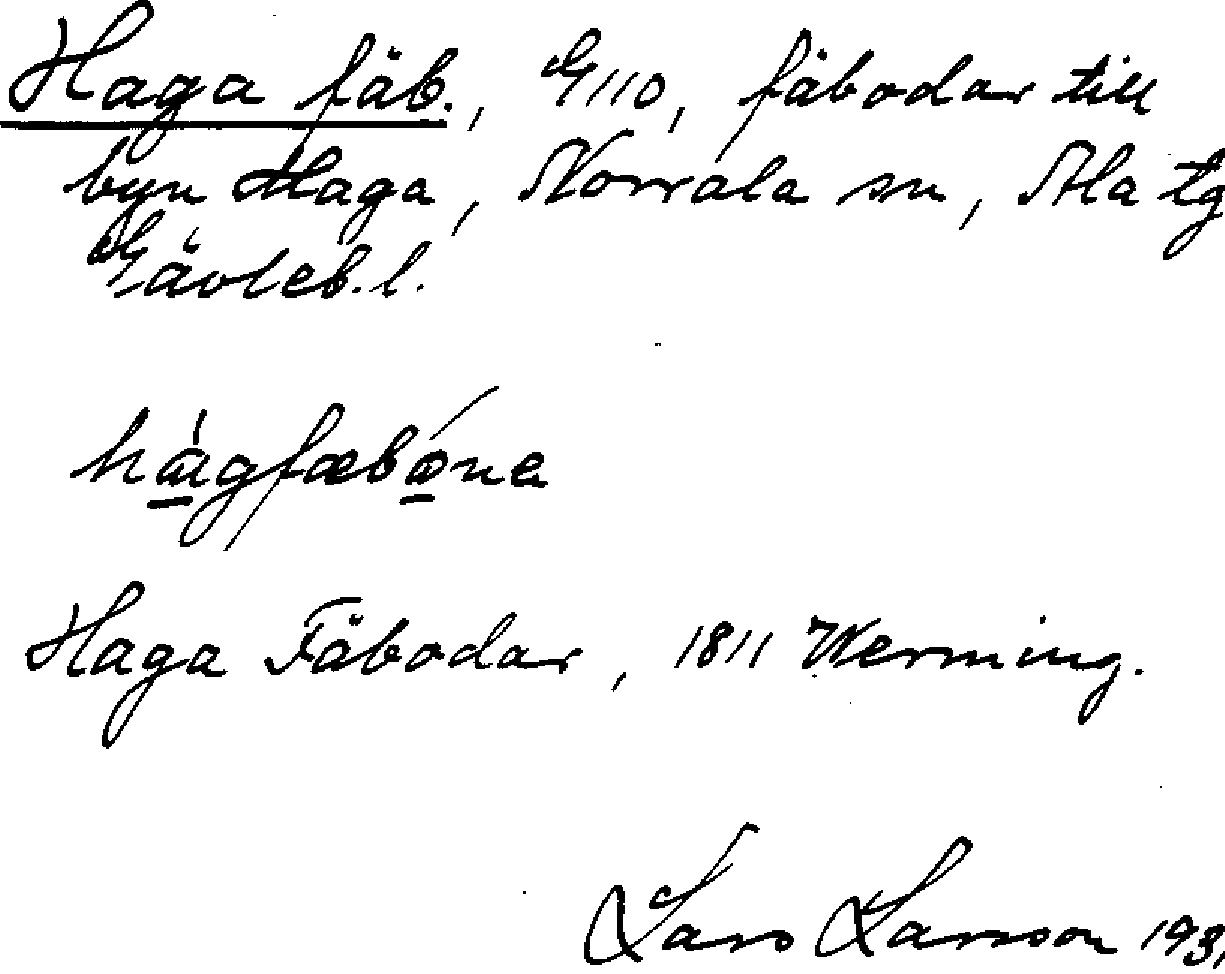 Haga fäb., G110, fäbodar till
byn Haga, Norrala sn, Ala tg
Gävleb.l.
hàgfæbóne
Haga Fäbodar, 1811 Werming.
Lars Larsson 193